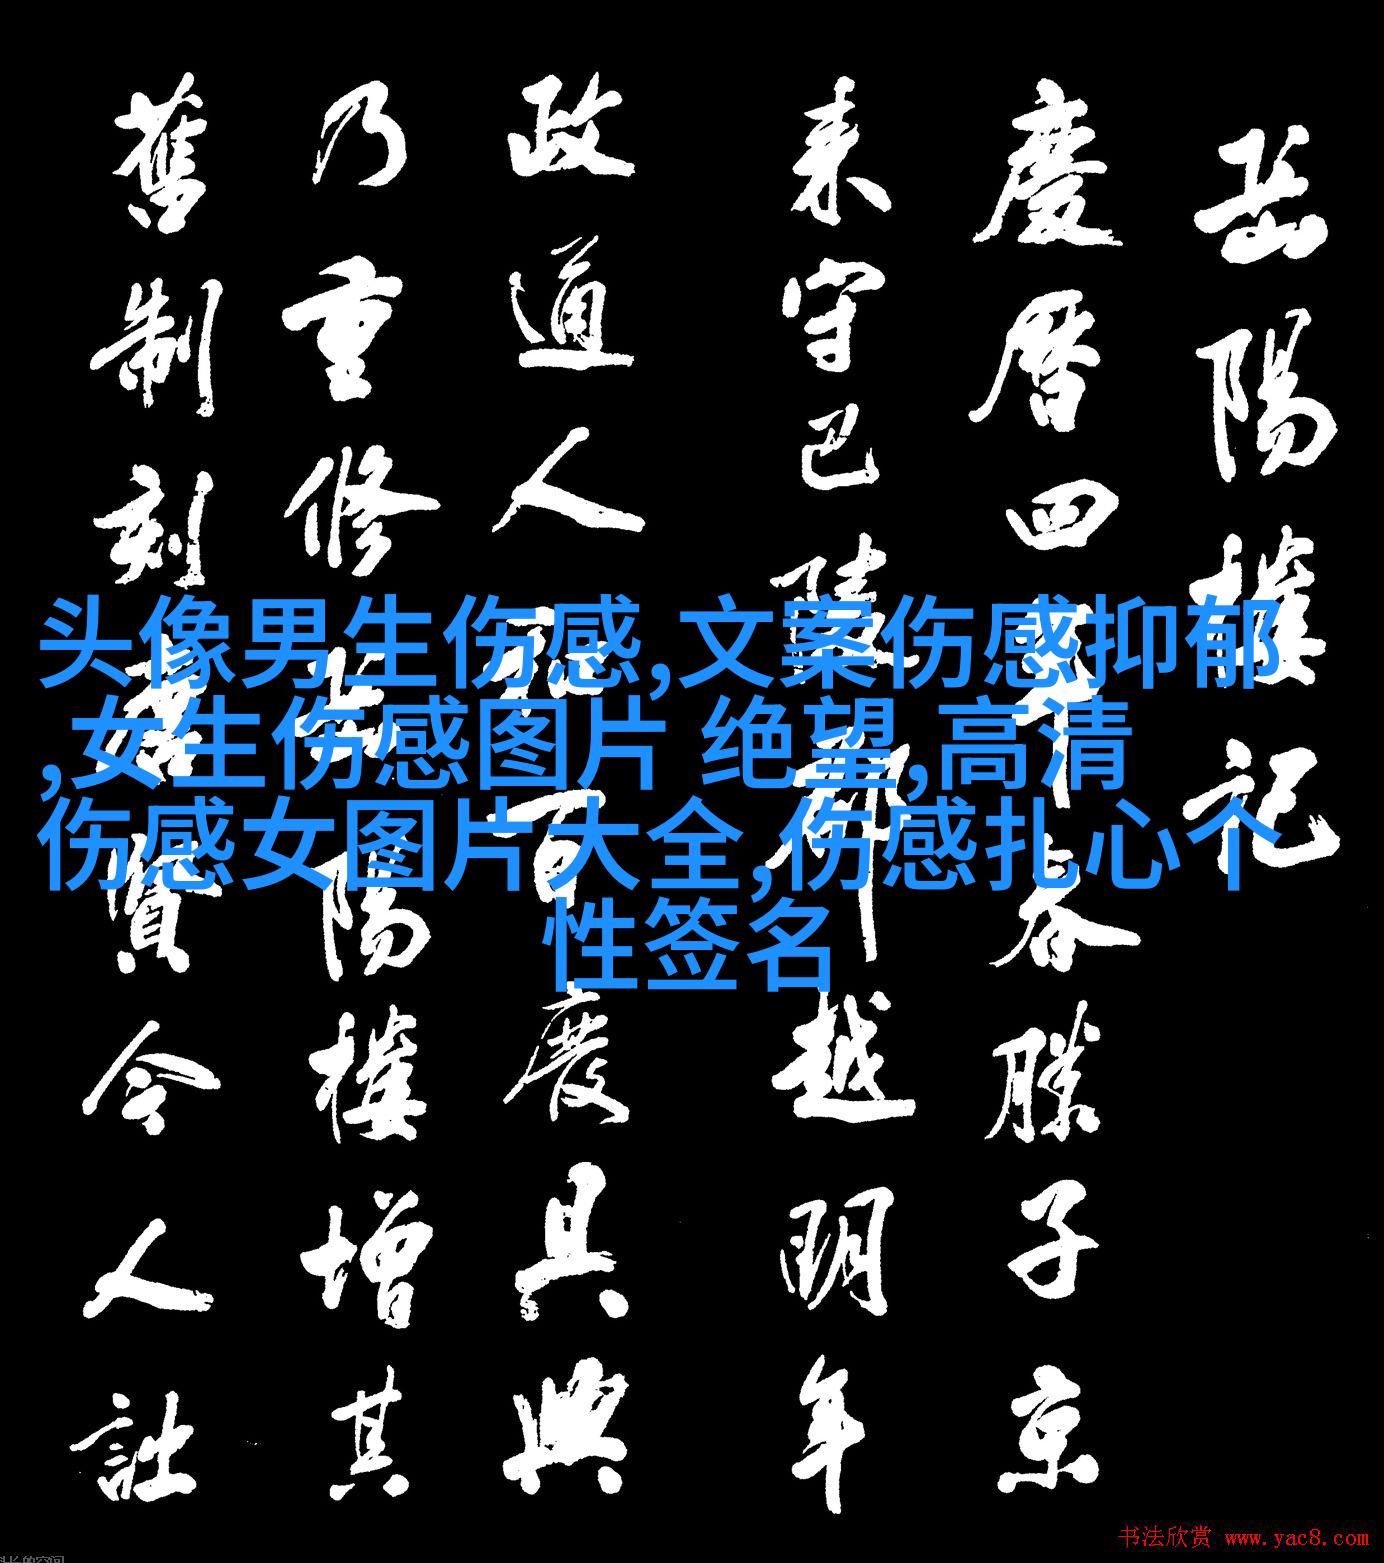 岳陽樓記
慶曆四年春滕子京
来守巴陵郡越明年
政通人和百廢具興
乃重修岳陽樓增其
舊制刻唐賢今人詩
头像男生伤感,文案伤感抑郁
,女生伤感图片 绝望,高清
伤感女图片大全,伤感扎心个
性签名
书法欣赏 www.yac8.com